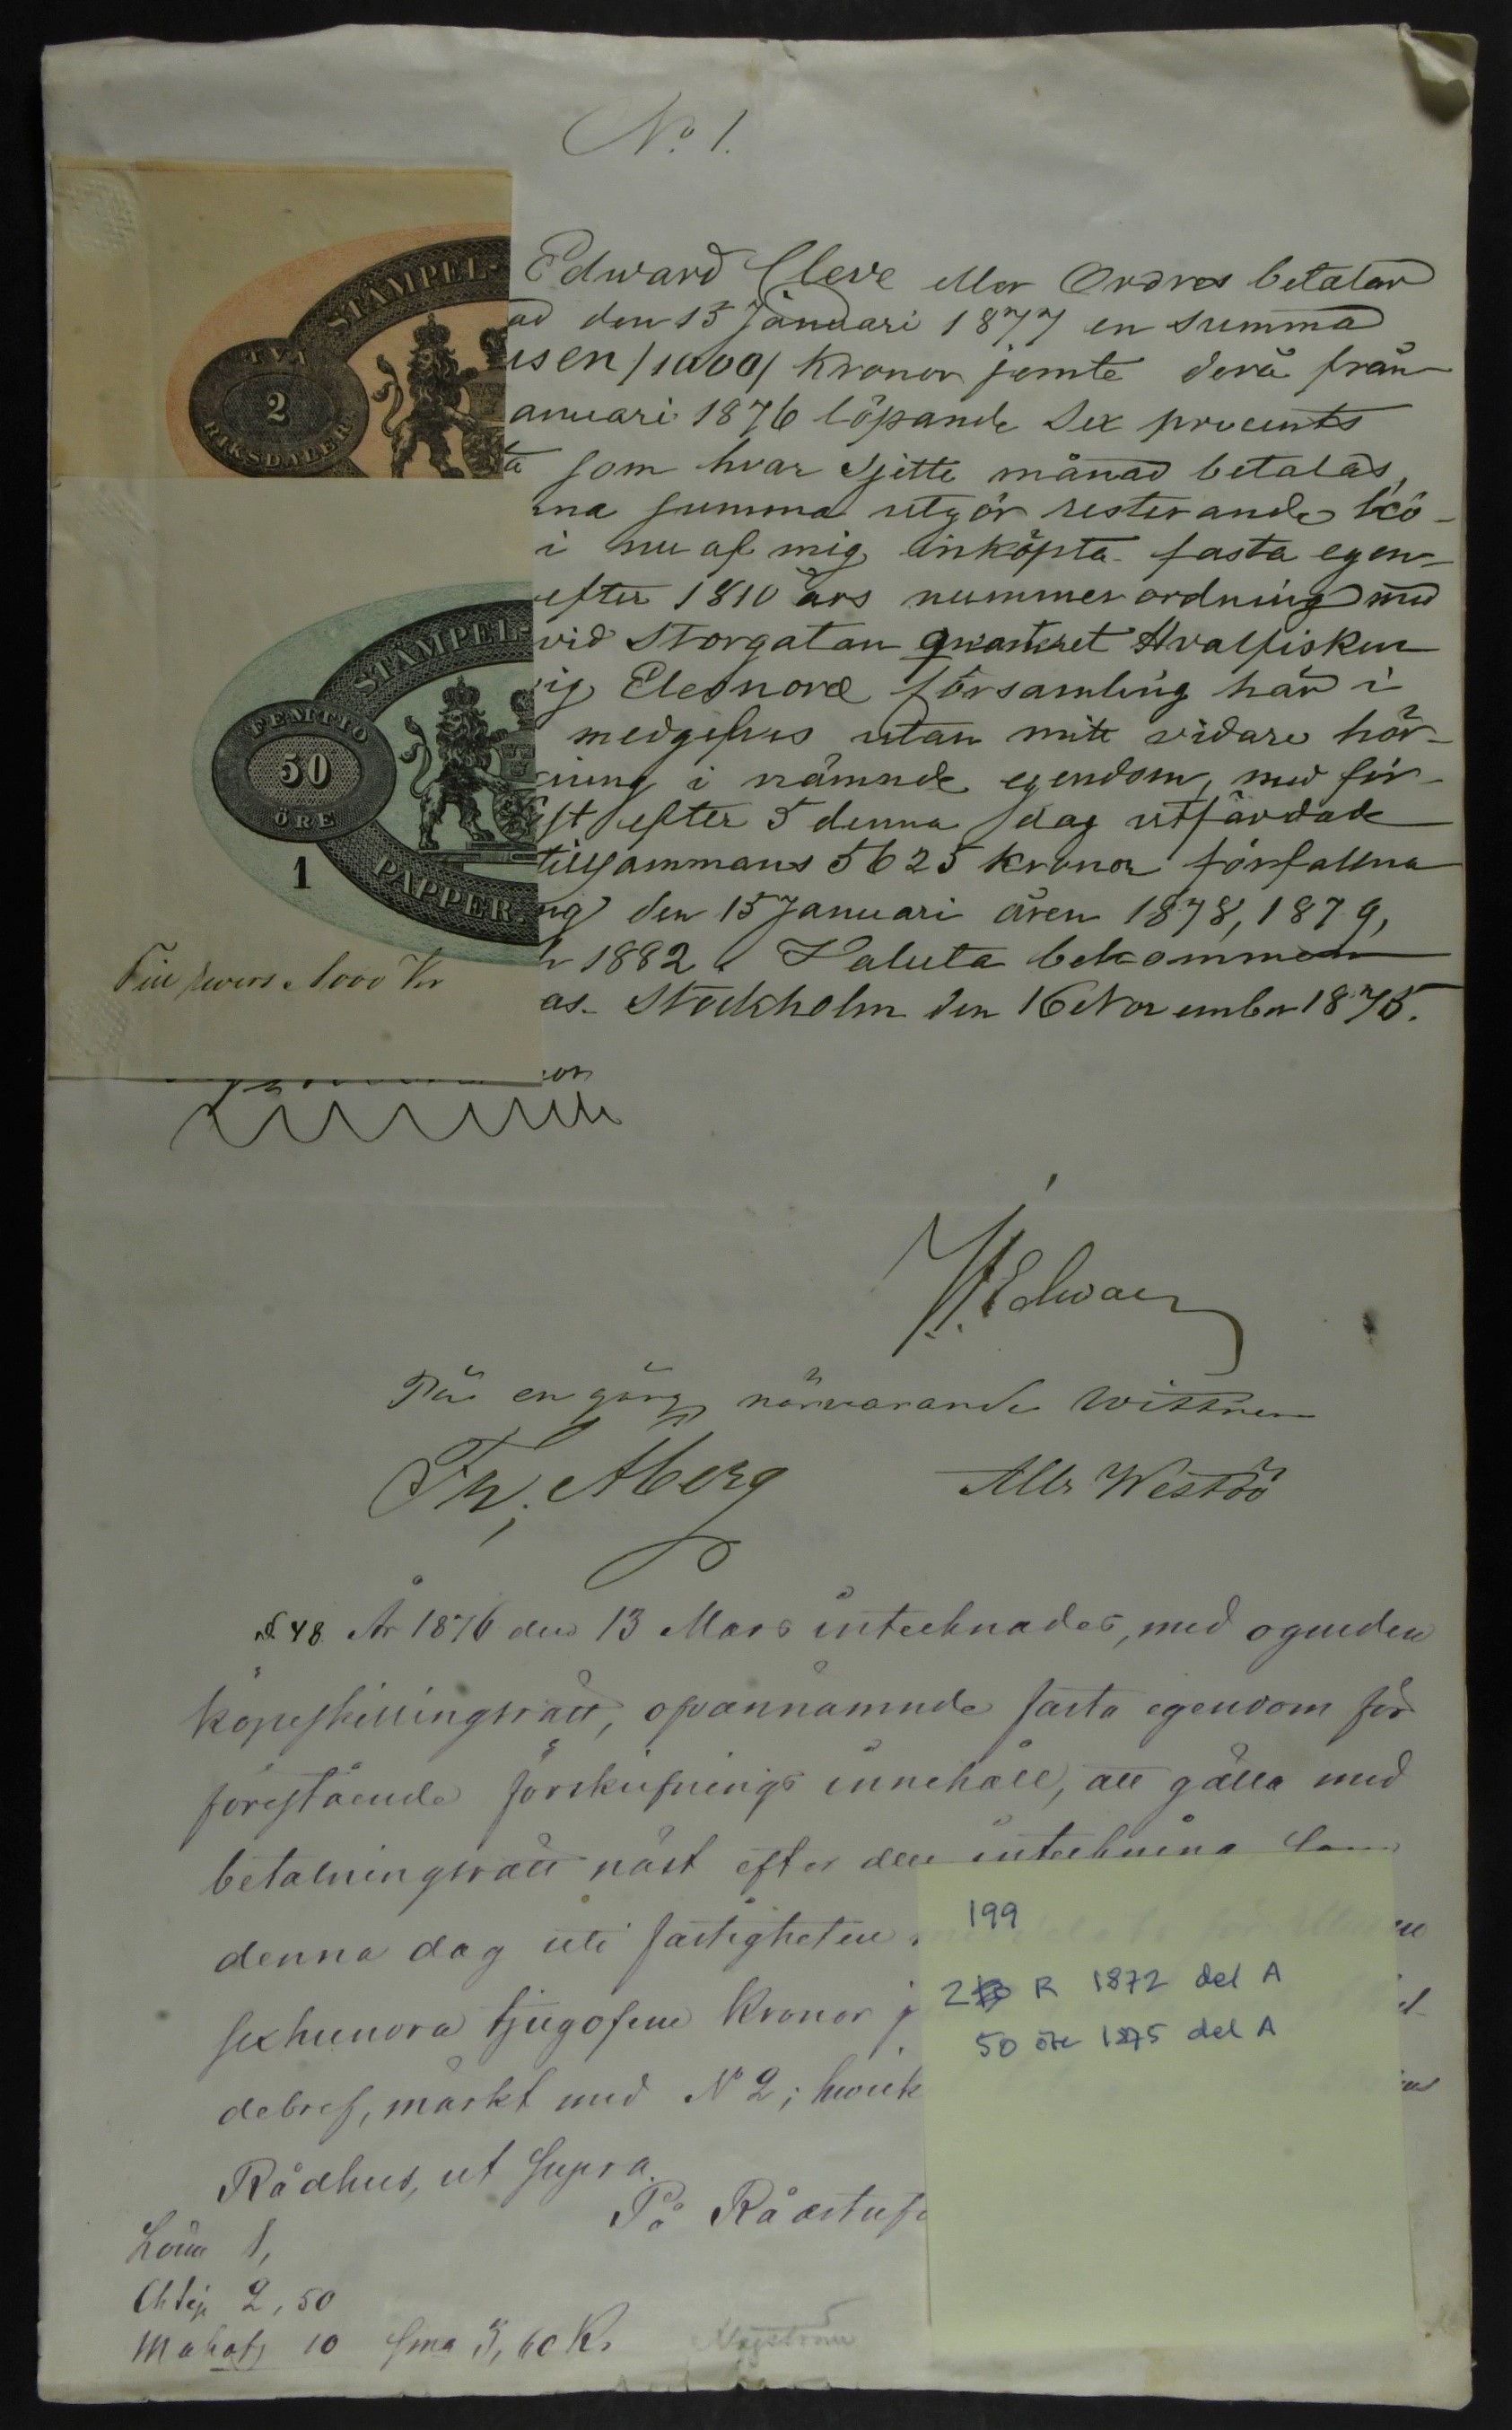 No 1.
STÄMPEL-
TVÅ
2
RIKSDALER
Edward Cleve eller Ordres betalar
den 15 Januari 1877 en summa
usen /1000/ Kronor jemte derå från
anuari 1876 löpande Sex procents
som hvar Sjette månad betalas,
na summa utgör resterande kö-
i nu af mig inköpta fasta egen-
efter 1810 års nummerordning med
vid Storgatan qvarteret Hvalfisken
ig Eleonoræ församling här i
medgifves utan mitt vidare hör-
ning i nämnde egendom, med för-
st efter 5 denna dag utfärdade
tillsammans 5625 kronor förfallna
den 15 Januari åren 1878, 1879,
1882. Valuta bekommen
as. Stockholm den 16 November 1875.
STÄMPEL-
FEMTIO
50
ÖRE
1
PAPPER.
Till revers 1000 Kr
På en gång närvarande wittnen
Åberg Westöö
№ 48. År 1876 den 13 Mars intecknades, med ogulden
köpeskillingsrätt, ofvannämnde fasta egendom för
förestående förskrifnings innehåll, att gälla med
betalningsrätt näst efter den inteckning som
denna dag uti fastigheten
sexhundra tjugofem Kronor
debref, märkt med No 2; hvilk
Rådhus, ut supra.
På Rådstufv
Lösen 1,
Ch Sig 2,50
10 Sma 3,60 K.
199
2 R 1872 del A
50 öre 1875 del A